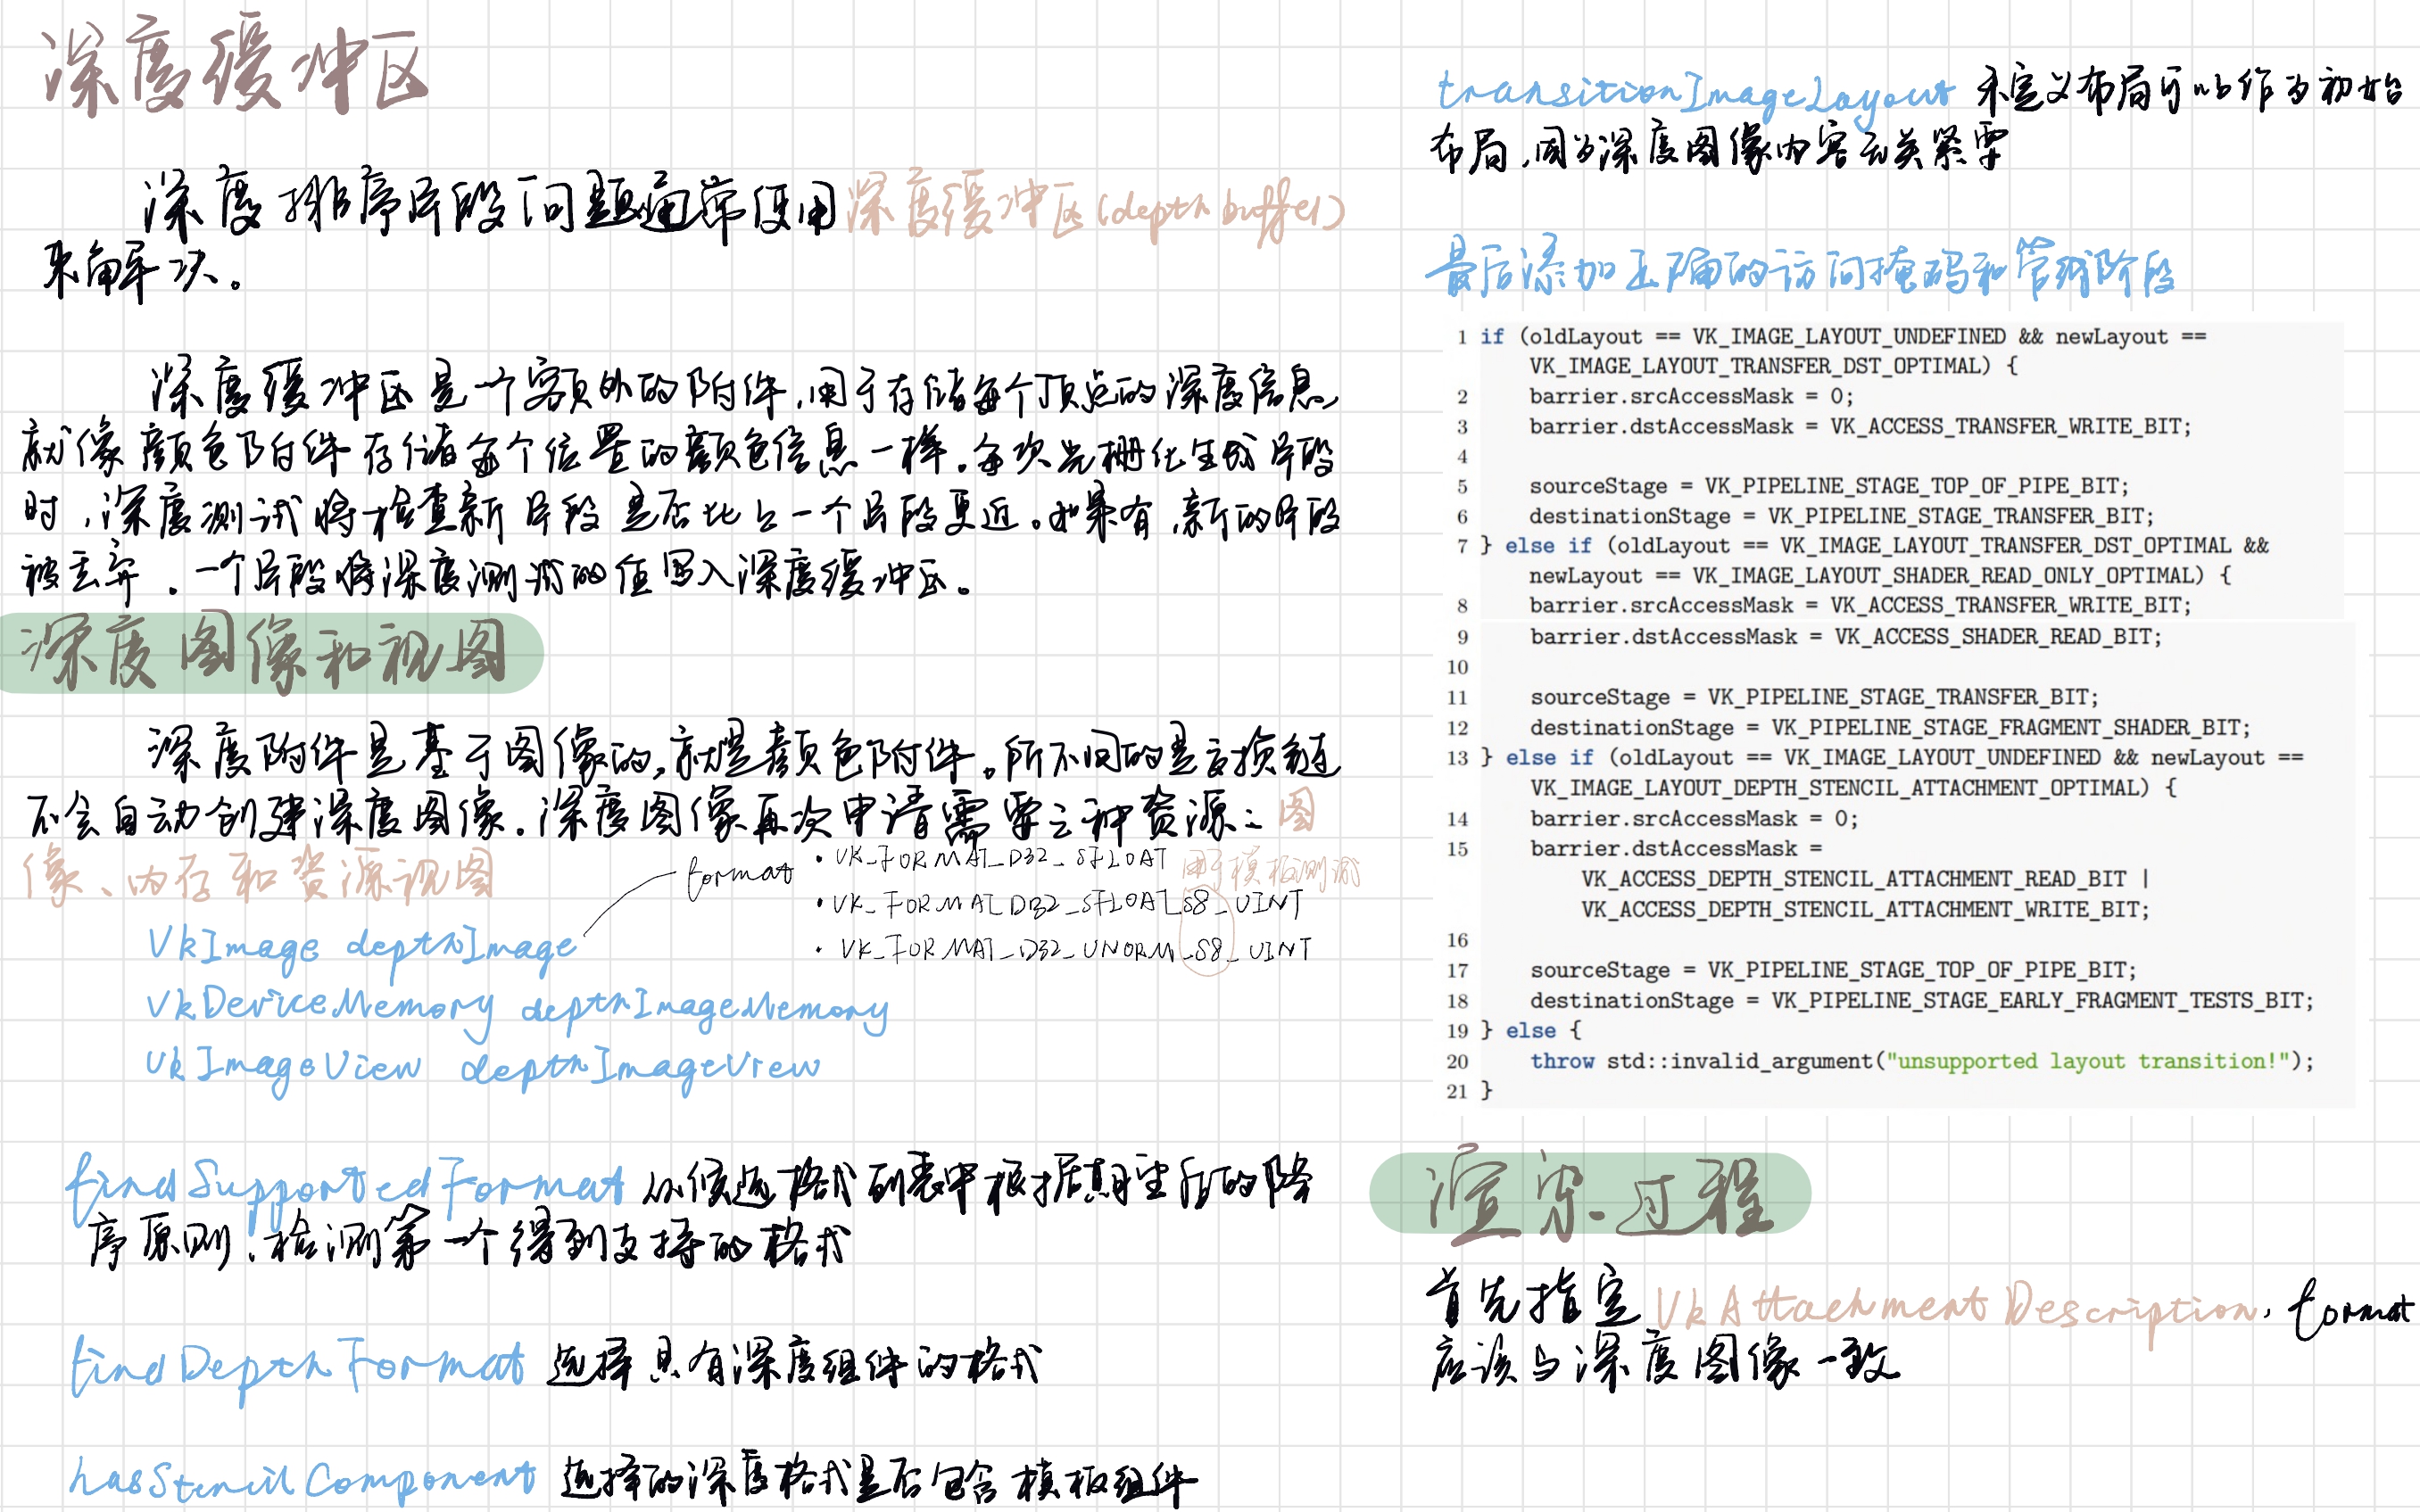 深度缓冲区
深度排序片段问题通常使用深度缓冲区(depth buffer)
来解决。
深度缓冲区是一个额外的附件,用于存储每个顶点的深度信息,
就像颜色附件存储每个位置的颜色信息一样。每次光栅化生成片段
时,深度测试将检查新片段是否比上一个片段更近。如果有,新的片段
被丢弃。一个片段将深度测试的值写入深度缓冲区。
深度图像和视图
深度附件是基于图像的,就是颜色附件。所不同的是交换链
不会自动创建深度图像。深度图像再次申请需要三种资源:图
像、内存和资源视图
VkImage depthImage
VkDeviceMemory depthImageMemory
VkImageView depthImageView
format
• VK_FORMAT_D32_SFLOAT 用于模板测试
• VK_FORMAT_D32_SFLOAT_S8_UINT
• VK_FORMAT_D32_UNORM_S8_UINT
findSupportedFormat 从候选格式列表中根据期望值的降
序原则,检测第一个得到支持的格式
findDepthFormat 选择具有深度组件的格式
hasStencilComponent 选择的深度格式是否包含模板组件
transitionImageLayout 未定义布局可以作为初始
布局,因为深度图像内容无关紧要
最后添加正确的访问掩码和管线阶段
1 if (oldLayout == VK_IMAGE_LAYOUT_UNDEFINED && newLayout ==
VK_IMAGE_LAYOUT_TRANSFER_DST_OPTIMAL) {
2 barrier.srcAccessMask = 0;
3 barrier.dstAccessMask = VK_ACCESS_TRANSFER_WRITE_BIT;
4
5 sourceStage = VK_PIPELINE_STAGE_TOP_OF_PIPE_BIT;
6 destinationStage = VK_PIPELINE_STAGE_TRANSFER_BIT;
7 } else if (oldLayout == VK_IMAGE_LAYOUT_TRANSFER_DST_OPTIMAL &&
newLayout == VK_IMAGE_LAYOUT_SHADER_READ_ONLY_OPTIMAL) {
8 barrier.srcAccessMask = VK_ACCESS_TRANSFER_WRITE_BIT;
9 barrier.dstAccessMask = VK_ACCESS_SHADER_READ_BIT;
10
11 sourceStage = VK_PIPELINE_STAGE_TRANSFER_BIT;
12 destinationStage = VK_PIPELINE_STAGE_FRAGMENT_SHADER_BIT;
13 } else if (oldLayout == VK_IMAGE_LAYOUT_UNDEFINED && newLayout ==
VK_IMAGE_LAYOUT_DEPTH_STENCIL_ATTACHMENT_OPTIMAL) {
14 barrier.srcAccessMask = 0;
15 barrier.dstAccessMask =
VK_ACCESS_DEPTH_STENCIL_ATTACHMENT_READ_BIT |
VK_ACCESS_DEPTH_STENCIL_ATTACHMENT_WRITE_BIT;
16
17 sourceStage = VK_PIPELINE_STAGE_TOP_OF_PIPE_BIT;
18 destinationStage = VK_PIPELINE_STAGE_EARLY_FRAGMENT_TESTS_BIT;
19 } else {
20 throw std::invalid_argument("unsupported layout transition!");
21 }
渲染过程
首先指定 VkAttachmentDescription, format
应该与深度图像一致